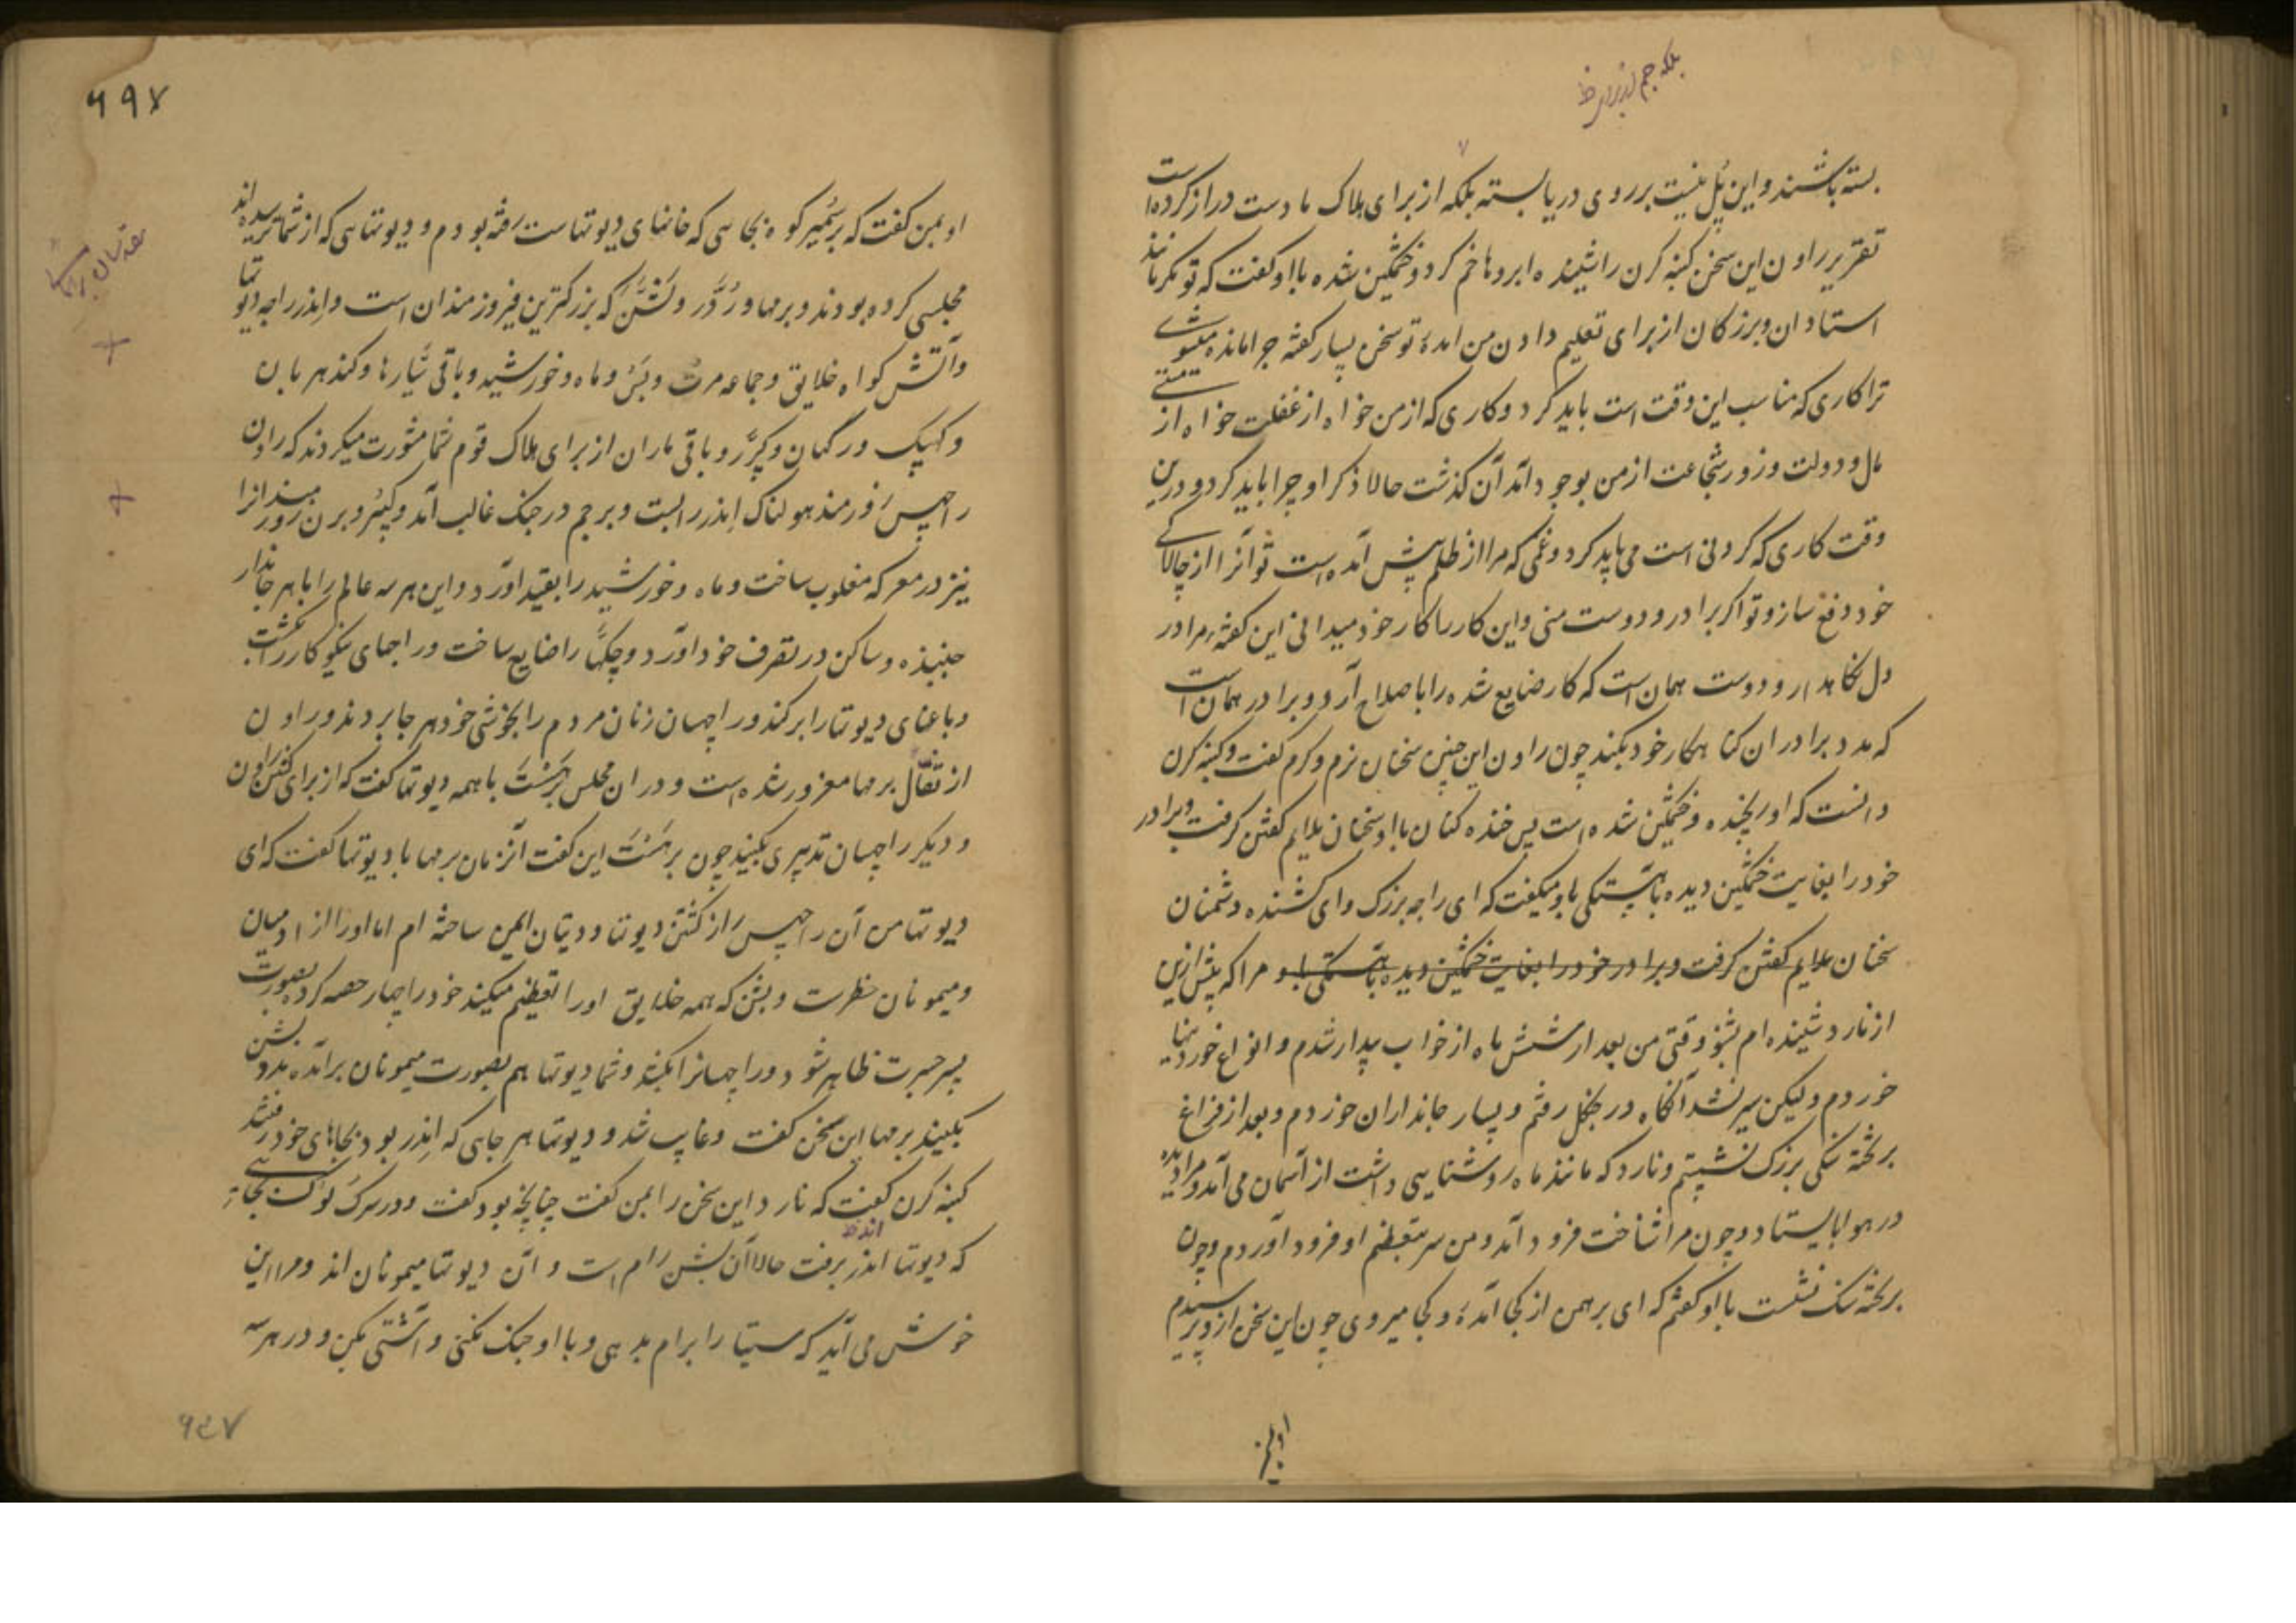 بسته باشند و این پل نیست بر روی دریا بسته بلکه از برای هلاک ما دست دراز کرده است
تقریر راون این سخن کنبه کرن را شنیده ابروها خم کرد و خشمگین شده باو گفت که تو مگر مانند
استادان و بزرگان از برای تعلیم دادن من آمدهٔ تو سخن بسیار گفته چرا مانده میشوی
ترا کاری که مناسب این وقت است باید کرد و کاری که از من خواه از غفلت خواه از مستی
مال و دولت و زور شجاعت از من بوجود آمد آن گذشت حالا ذکر او چرا باید کرد و درین
وقت کاری که کردنی است می باید کرد و غمی که مرا از ظلم پیش آمده است تو آنرا از چالاکی
خود دفع ساز و تو اگر برادر و دوست منی و این کار را کار خود میدانی این گفته مرا در
دل نگاهدار و دوست همان است که کار ضایع شده را باصلاح آرد و برادر همان است
که مدد برادران گناهکار خود بکند چون راون این چنین سخنان نرم و گرم گفت و کنبه کرن
دانست که او رنجیده و خشمگین شده است پس خنده کنان باو سخنان ملایم گفتن گرفت و برادر
خود را بغایت خشمگین دیده بآهستگی باو میگفت که ای راجه بزرگ و ای کشنده دشمنان
سخنان ملایم گفتن گرفت و برادر خود را بغایت خشمگین دیده بآهستگی باو مرا که پیش ازین
از نارد شنیده ام بشنو وقتی من بعد از شش ماه از خواب بیدار شدم و انواع خوردنیها
خوردم و لیکن سیر نشد آنگاه در جنگل رفتم و بسیار جانداران خوردم و بعد از فراغ
بر تخته سنگی بزرگ نشستم و نارد که مانند ماه روشنایی داشت از آسمان می آمد و مرا دیده
در هوا بایستاد و چون مرا شناخت فرود آمد و من سر بتعظیم او فرود آوردم و چون
بر تخته سنگ نشست باو گفتم که ای برهمن از کجا آمدهٔ و کجا میروی چون این سخن ازو پرسیدم
او بمن
۶۹۷
او بمن گفت که بر سمیر کوه بجایی که خانهای دیوتهاست رفته بودم و دیوتهایی که از شما ترسیده اند
مجلسی کرده بودند و برمها و ردر و بشن که بزرگترین فیروزمندان است و اندر راجه دیوتها
و آتش گواه خلایق و جماعه مرت و بس و ماه و خورشید و باقی سیارها و گندهربان
و کپیک و رگهان و گرر و باقی ماران از برای هلاک قوم شما مشورت میکردند که راون
راچهس زورمند هولناک اندر را بست و بر جم در جنگ غالب آمد و کبیر و برن زورمند را
نیز در معرکه مغلوب ساخت و ماه و خورشید را بقید آورد و این هر سه عالم را با هر جاندار
جنبنده و ساکن در تصرف خود آورد و جگها را ضایع ساخت و راجهای نیکوکار را بکشت
و باغهای دیوتها را برکند و راچهسان زنان مردم را بخوشی خود هر جا بردند و راون
از تفأل برمها مغرور شده است و در آن مجلس برهسپت با همه دیوتها گفت که از برای کشتن راون
و دیگر راچهسان تدبیری بکنید چون برهسپت این گفت آنزمان برمها با دیوتها گفت که ای
دیوتها من آن راچهس را از کشتن دیوتها و دیتان ایمن ساخته ام اما او را از آدمیان
و میمونان خطر است و بشن که همه خلایق او را تعظیم میکنند خود را چهار حصه کرده بصورت
پسر جسرت ظاهر شود و راچهسانرا بکشد و شما دیوتها هم بصورت میمونان برآمده مدد بشن
بکنید برمها این سخن گفت و غایب شد و دیوتها هر جایی که اندر بود بجاهای خود رفتند
کنبه کرن گفت که نارد این سخن را بمن گفت چنانچه بود گفت و در سرگ لوک
که دیوتها اندر برفت حالا آن بشن رام است و آن دیوتها میمونان اند و مرا این
خوش می آید که سیتا را برام بدهی و با او جنگ نکنی و آشتی بکن و در هر سه
۶۴۷